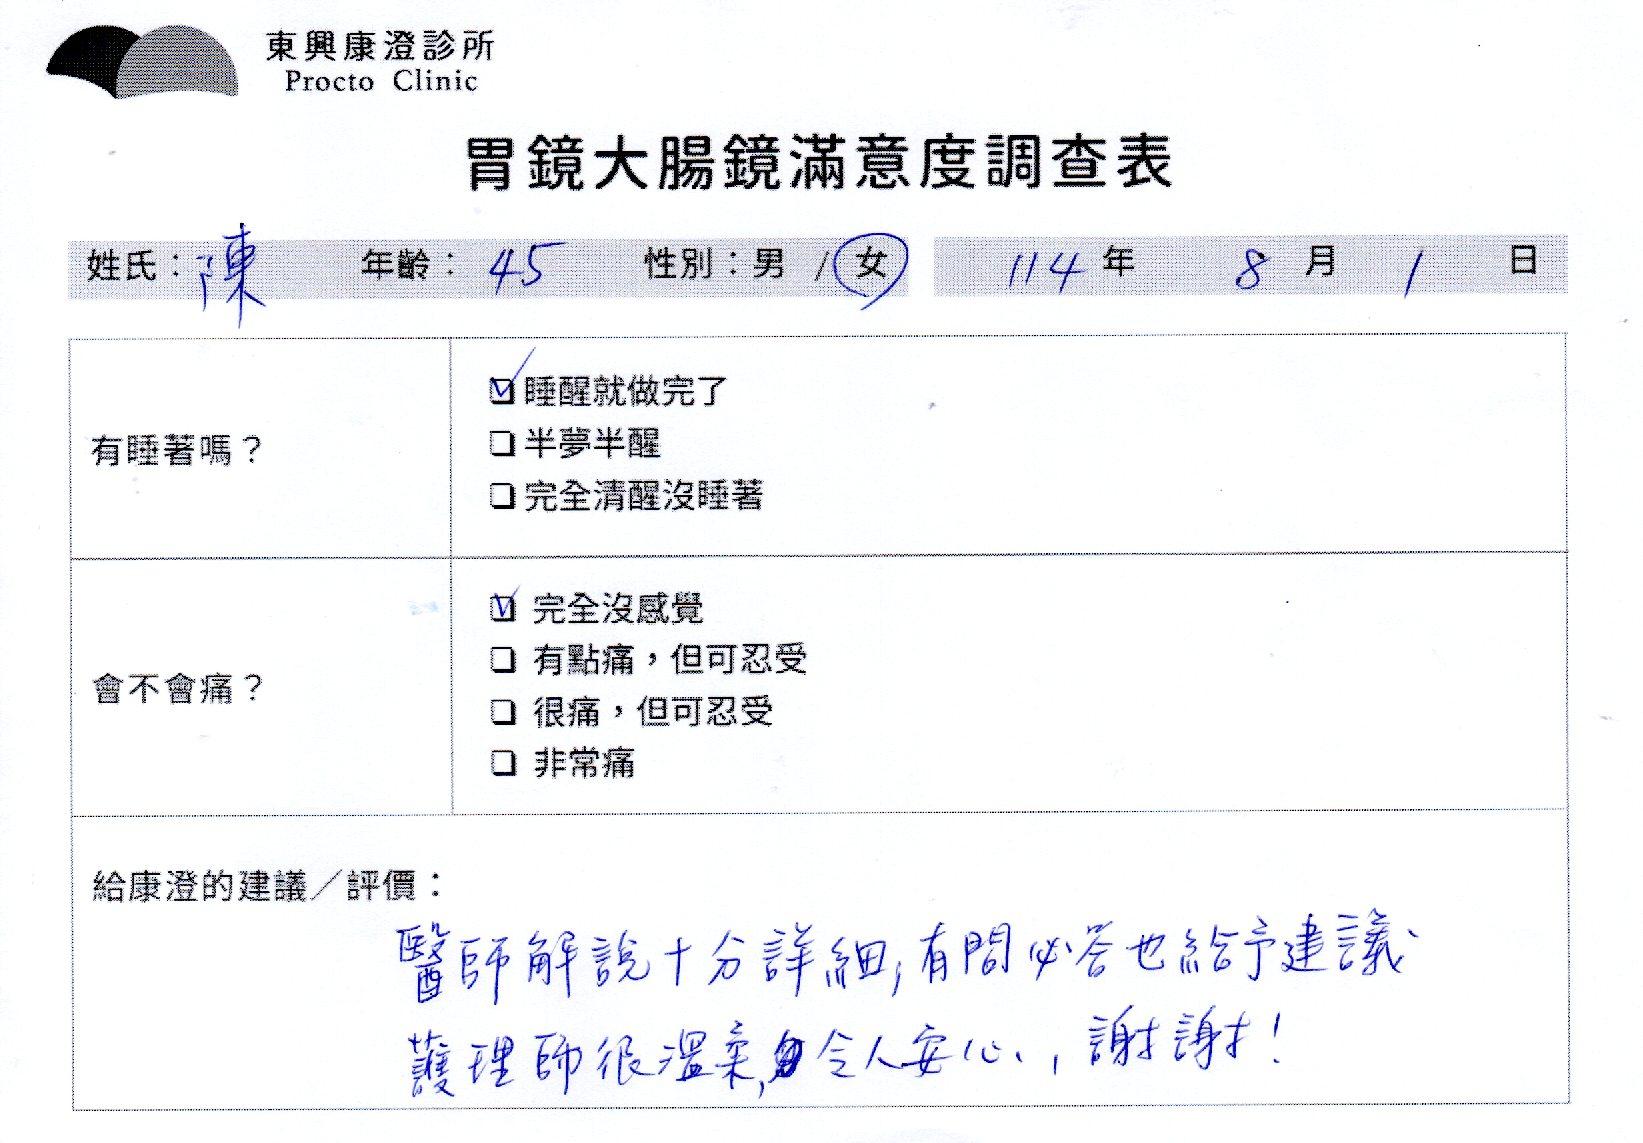 東興康澄診所
Procto Clinic
胃鏡大腸鏡滿意度調查表
姓氏：陳 年齡：45 性別：男 / 女 114 年 8 月 1 日
有睡著嗎？
☑睡醒就做完了
❏半夢半醒
❏完全清醒沒睡著
會不會痛？
☑ 完全沒感覺
❏ 有點痛，但可忍受
❏ 很痛，但可忍受
❏ 非常痛
給康澄的建議／評價：
醫師解說十分詳細,有問必答也給予建議
護理師很溫柔,令人安心,謝謝!